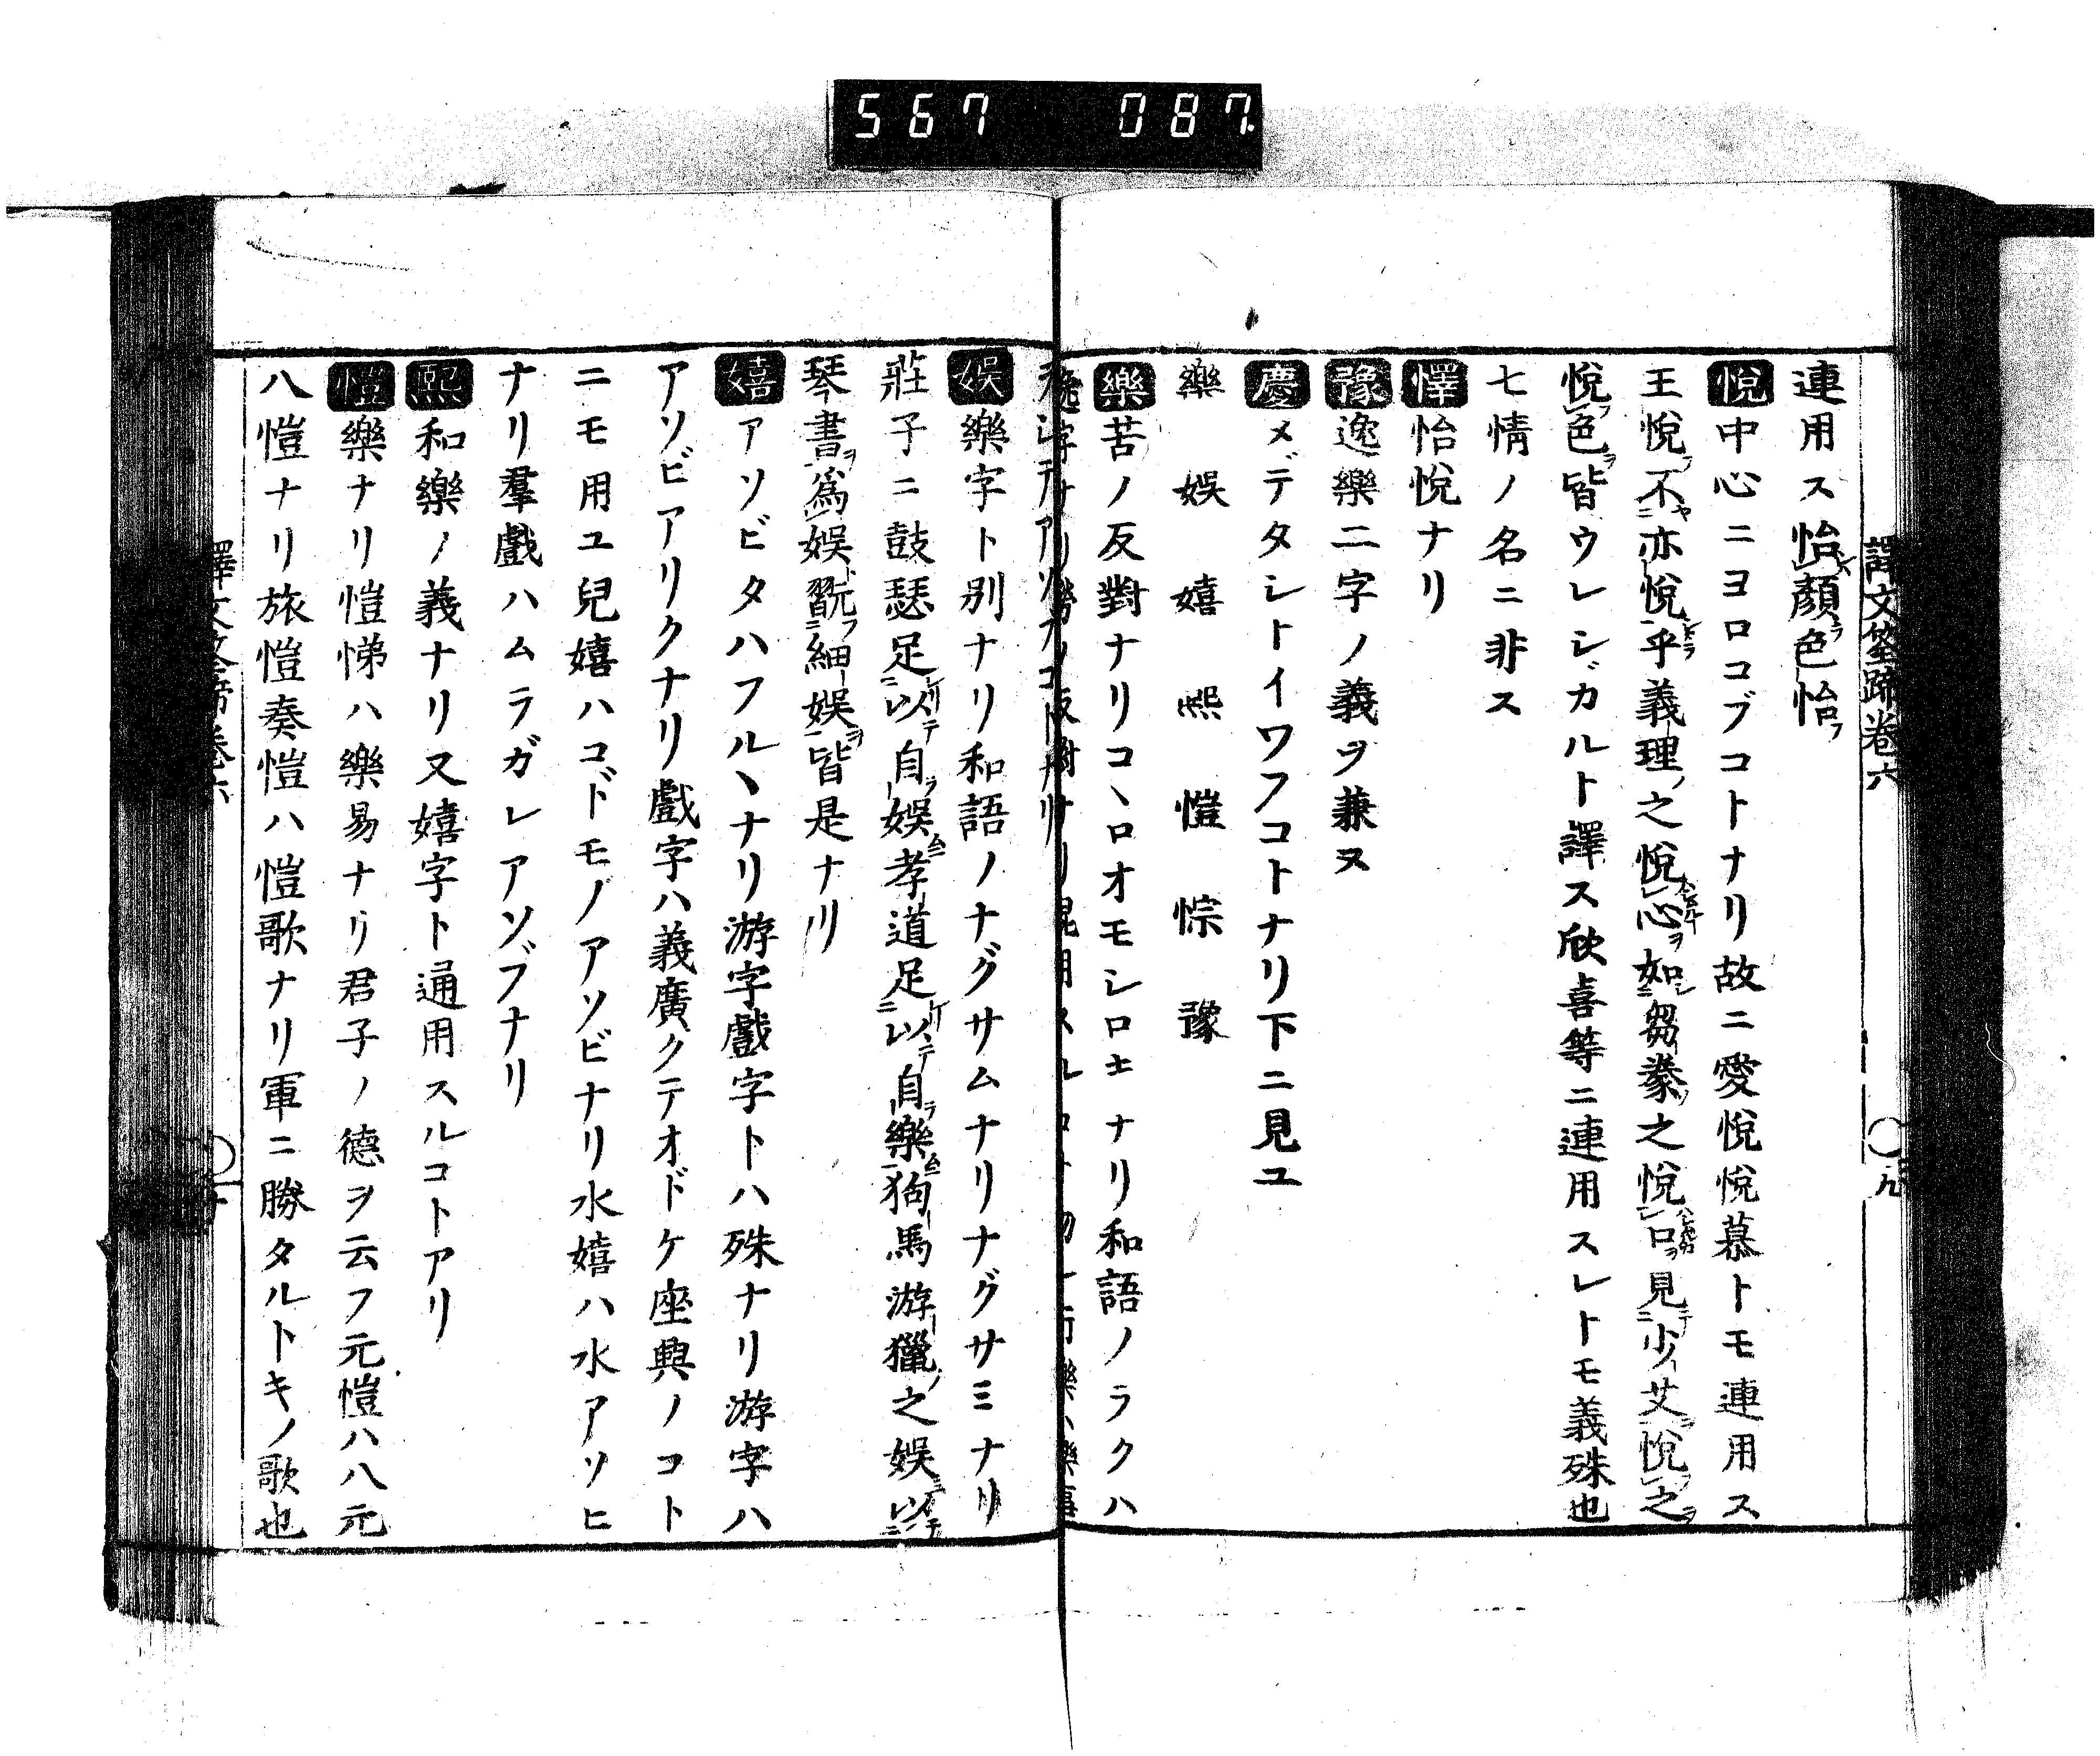 567 087
譯文筌蹄卷六 九
連用ス怡顏色怡
悅中心ニヨロコブコトナリ故ニ愛悅悅慕トモ連用ス
王悅不亦悅乎義理之悅心如芻豢之悅口見少艾悅之
悅色皆ウレシガルト譯ス欣喜等ニ連用スレトモ義殊也
七情ノ名ニ非ス
懌怡悅ナリ
豫逸樂二字ノ義ヲ兼ヌ
慶メデタシトイワフコトナリ下ニ見ユ
樂娛嬉熙愷悰豫
樂苦ノ反對ナリコヽロオモシロキナリ和語ノラクハ
娛樂字ト別ナリ和語ノナグサムナリナグサミナリ
莊子ニ鼓瑟足以自娛孝道足以自樂狗馬游獵之娛以
琴書爲娛翫細娛皆是ナリ
嬉アソビタハフルヽナリ游字戲字トハ殊ナリ游字ハ
アソビアリクナリ戲字ハ義廣クテオドケ座興ノコト
ニモ用ユ兒嬉ハコドモノアソビナリ水嬉ハ水アソヒ
ナリ羣戲ハムラガレアソブナリ
熙和樂ノ義ナリ又嬉字ト通用スルコトアリ
愷樂ナリ愷悌ハ樂易ナリ君子ノ德ヲ云フ元愷ハ八元
八愷ナリ旅愷奏愷ハ愷歌ナリ軍ニ勝タルトキノ歌也